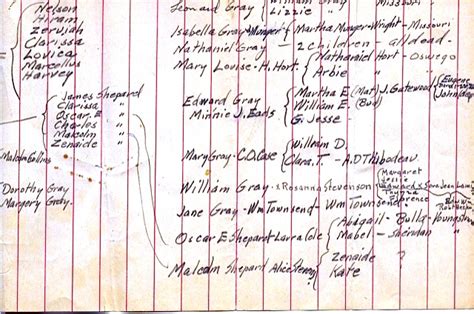 Nelson
Hiram
Zerviah
Clarissa
Lovica
Marcellus
Harvey
James Shepard
Clarissa "
Oscar E "
Charles "
Malcolm "
Zenaide "
Malcolm Collins
Dorothy Gray
Margery Gray.
Leonard Gray
Lizzie "
Isabella Gray - Munger Martha Munger - Wright - Missouri
Nathaniel Gray - 2 children - all dead -
Mary Louise - H. Hort. Nathaniel Hort - Oswego
Arbie "
Edward Gray
Minnie J. Eads
Martha E (Mat) J. Gatewood
William E. (Bud)
G. Jesse
Eugene
John
Mary Gray - C.O. Case William D.
Clara. T. - A D Thibodeau
William Gray - & Rosanna Stevenson
Margaret
Jessie
Edward &
Florence
Jane Gray - Wm Townsend - Wm Townsend
Oscar E Shepard Larra Cole Abigail - Bulla - Youngstown
Mabel - Sheridan "
Malcolm Shepard Alice Zenaide "
Kate "